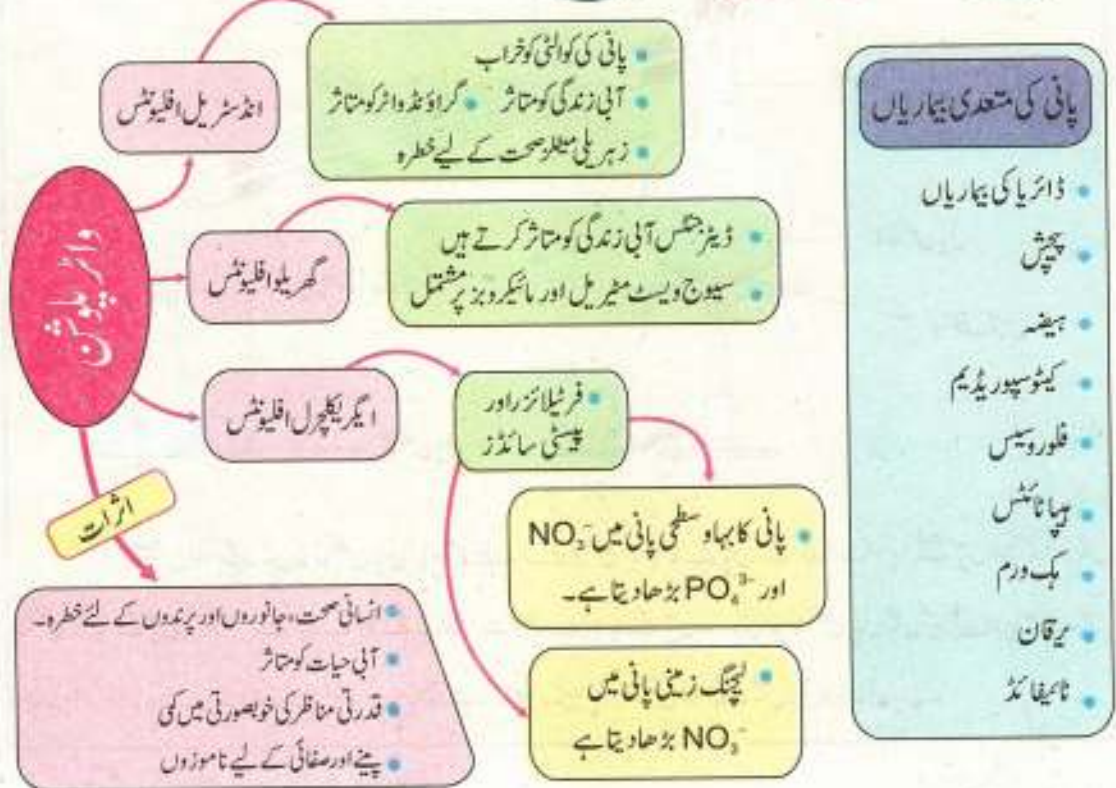 واٹر پلیوشن
انڈسٹریل افلیونٹس
• پانی کی کوالٹی کو خراب
• آبی زندگی کو متاثر • گراؤنڈ واٹر کو متاثر
• زہریلی میٹلز صحت کے لیے خطرہ
گھریلو افلیونٹس
• ڈیٹرجنٹس آبی زندگی کو متاثر کرتے ہیں
• سیوج ویسٹ مٹیریل اور مائیکروبز پر مشتمل
ایگریکلچرل افلیونٹس
• فرٹیلائزر اور
پیسٹی سائڈز
• پانی کا بہاو سطحی پانی میں NO₃⁻
اور PO₄³⁻ بڑھا دیتا ہے۔
• لیچنگ زمینی پانی میں
NO₃⁻ بڑھا دیتا ہے
اثرات
• انسانی صحت، جانوروں اور پرندوں کے لئے خطرہ۔
• آبی حیات کو متاثر
• قدرتی مناظر کی خوبصورتی میں کمی
• پینے اور صفائی کے لیے ناموزوں
پانی کی متعدی بیماریاں
• ڈائریا کی بیماریاں
• پیچش
• ہیضہ
• کیٹوسپوریڈیم
• فلوروسیس
• ہیپاٹائٹس
• ہک ورم
• یرقان
• ٹائیفائڈ